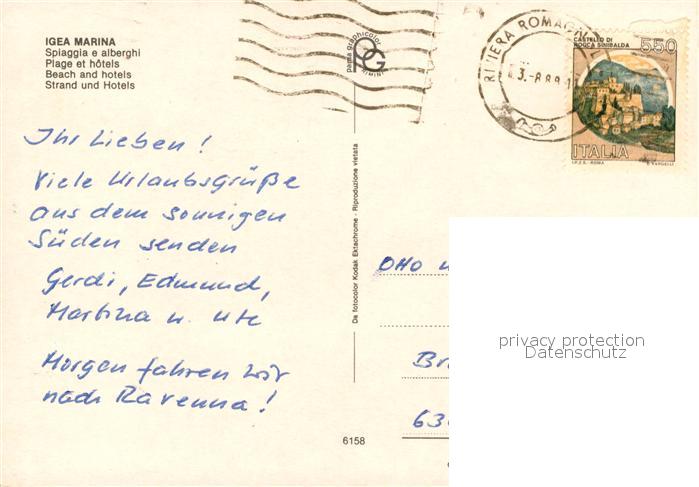 IGEA MARINA
Spiaggia e alberghi
Plage et hôtels
Beach and hotels
Strand und Hotels
pama graphicolor
PG
RIMINI
RIVIERA ROMAGN
3.-8.89
550
CASTELLO DI
ROCCA SINIBALDA
ITALIA
I.P.Z.S. - ROMA
Ihr Lieben!
Viele Urlaubsgrüße
aus dem sonnigen
Süden senden
Gerdi, Edmund,
Martina u. Ute
Morgen fahren wir
nach Ravenna!
Da fotocolor Kodak Ektachrome - Riproduzione vietata
6158
Otto u
Br
63
privacy protection
Datenschutz